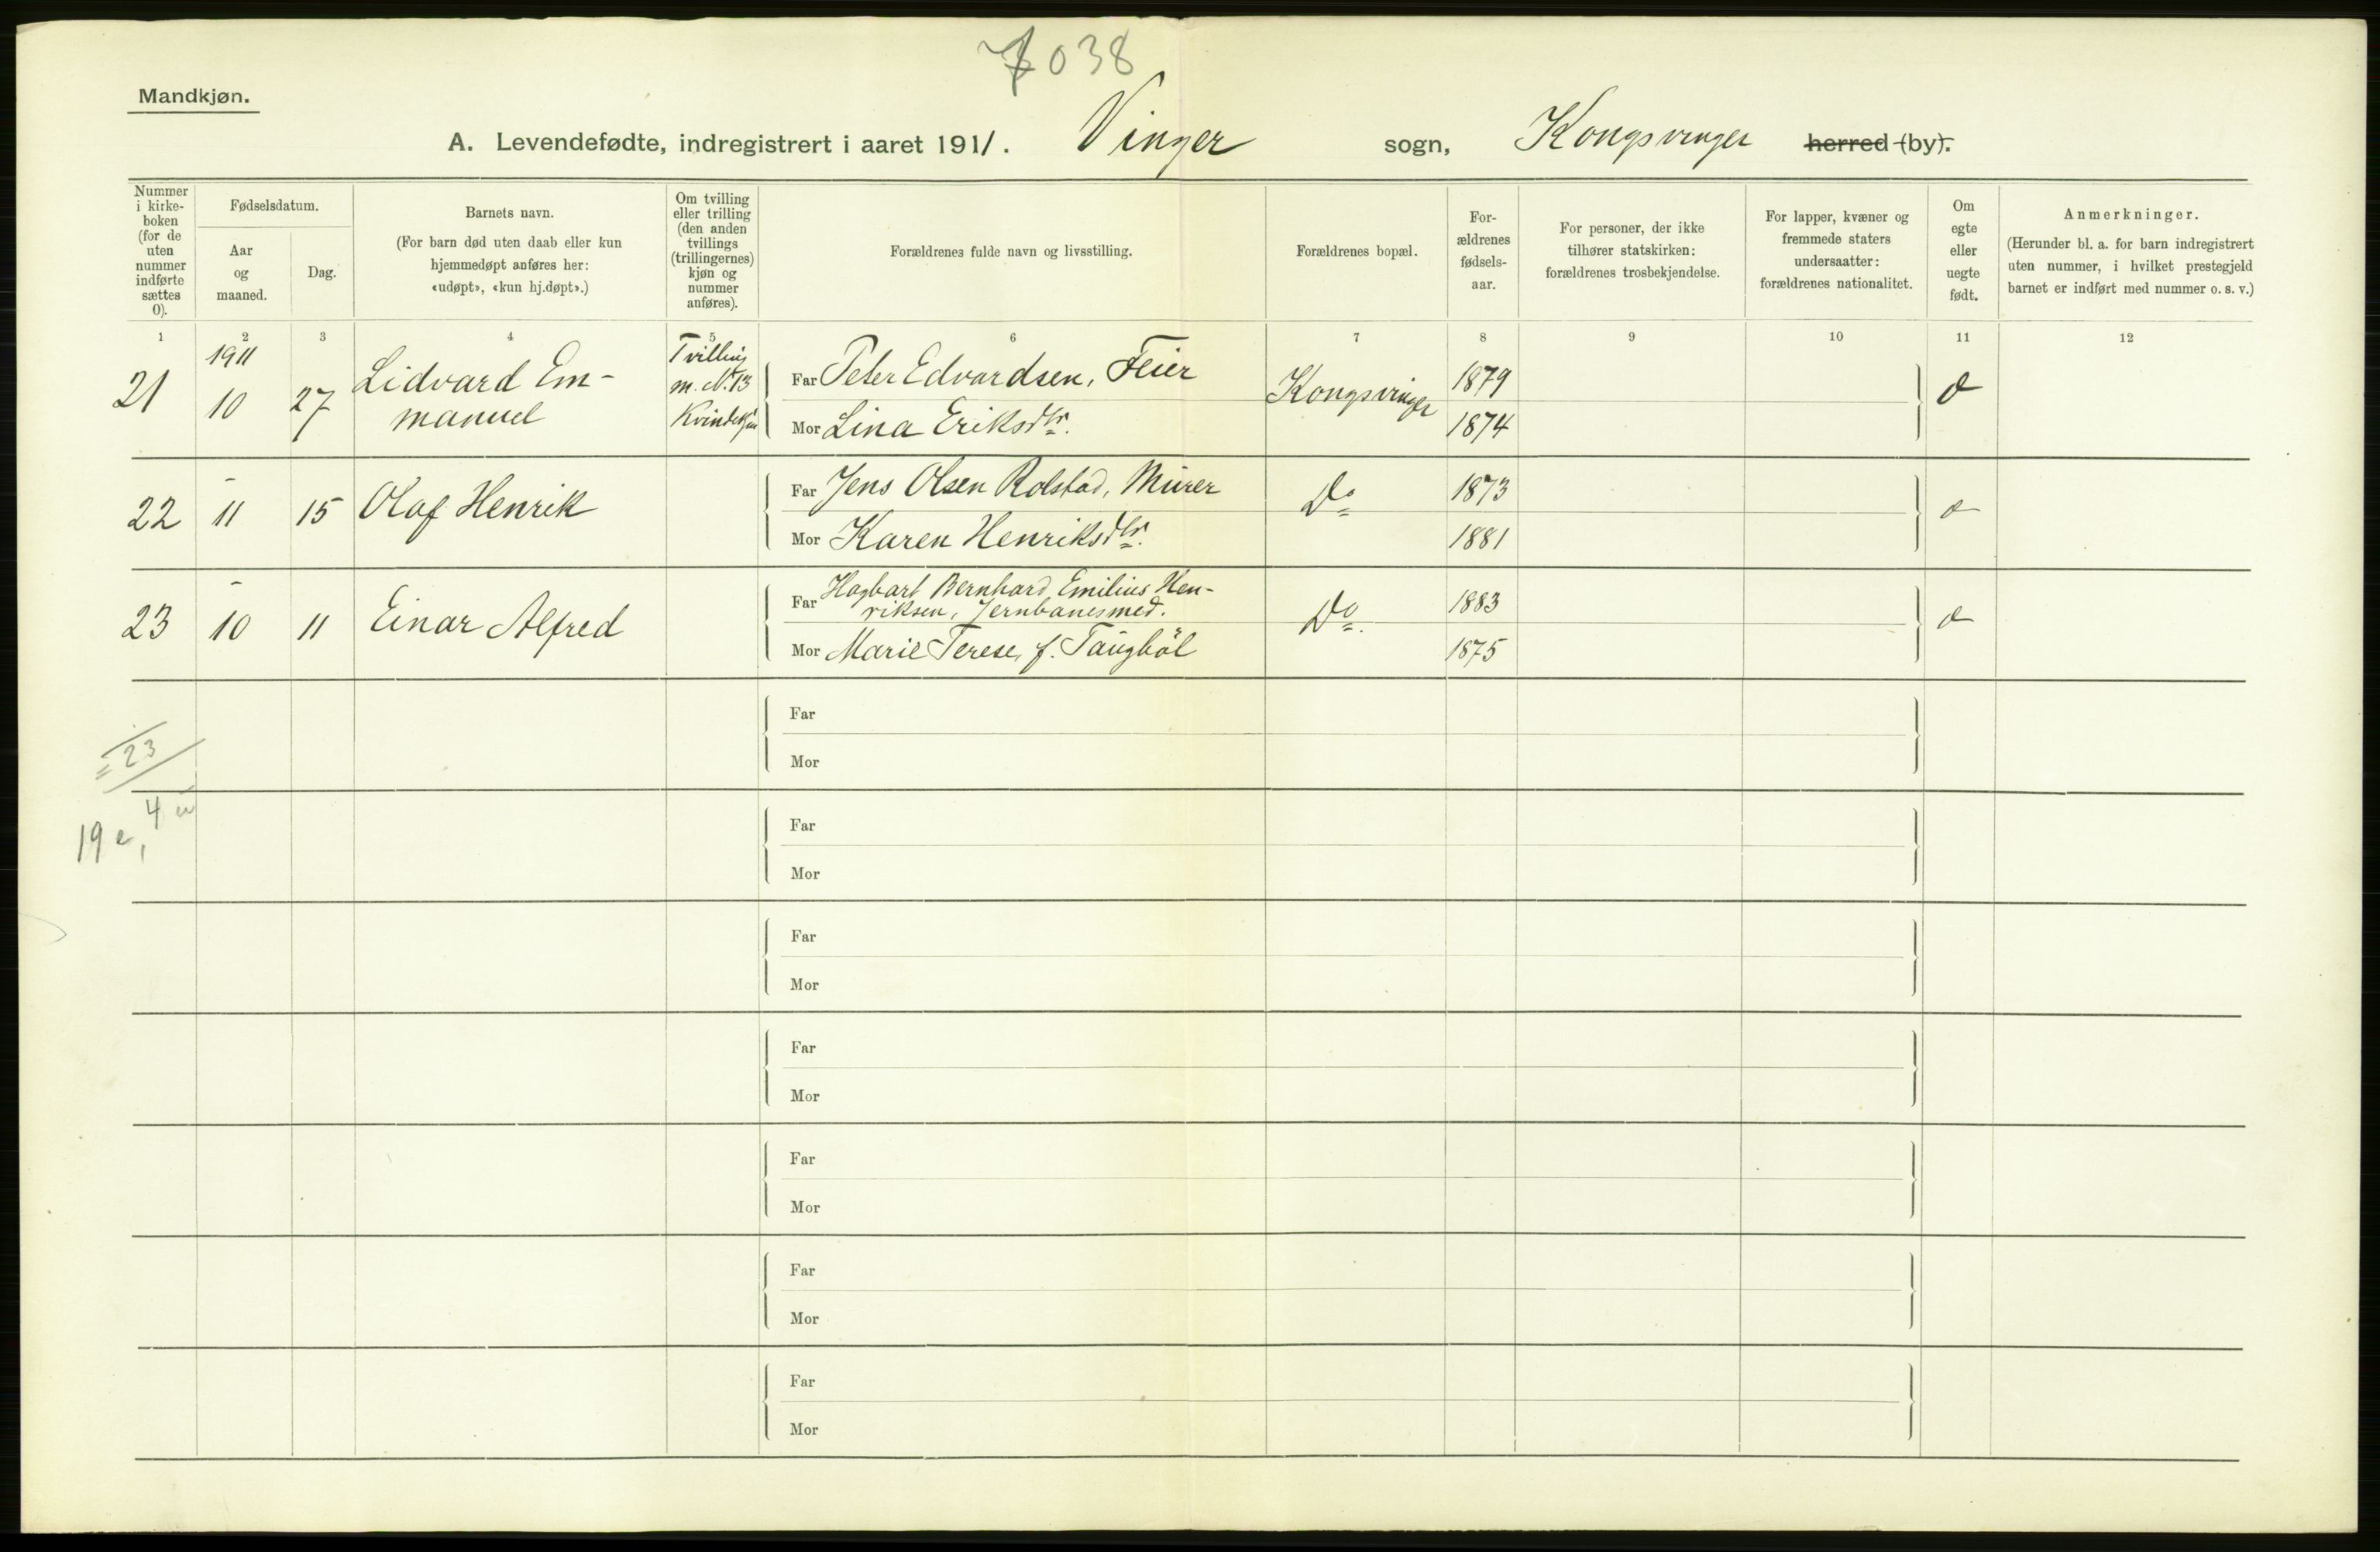 7038
Mandkjøn.
A. Levendefødte, indregistrert i aaret 1911. Vinger sogn, Kongsvinger herred (by).
Nummer i kirke-boken (for de uten nummer indførte sættes 0).
Fødselsdatum.
Aar og maaned.
Dag.
Barnets navn.
(For barn død uten daab eller kun hjemmedøpt anføres her: «udøpt», «kun hj.døpt».)
Om tvilling eller trilling (den anden tvillings (trillingernes) kjøn og nummer anføres).
Forældrenes fulde navn og livsstilling.
Forældrenes bopæl.
For-ældrenes fødsels-aar.
For personer, der ikke tilhører statskirken: forældrenes trosbekjendelse.
For lapper, kvæner og fremmede staters undersaatter: forældrenes nationalitet.
Om egte eller uegte født.
Anmerkninger.
(Herunder bl. a. for barn indregistrert uten nummer, i hvilket prestegjeld barnet er indført med nummer o. s. v.)
1 2 3 4 5 6 7 8 9 10 11 12
21 1911 10 27 Lidvard Em-
manuel
Tvilling
m. No 13
Kvindekjøn
Far Peter Edvardsen, Feier Kongsvinger 1879
Mor Lina Eriksdtr. 1874
22 - 11 15 Olaf Henrik
Far Jens Olsen Rolstad, Murer Do 1873
Mor Karen Henriksdtr. 1881
23 - 10 11 Einar Alfred
Far Hagbart Bernhard Emilius Hen-
riksen, Jernbanesmed. Do. 1883
Mor Marie Terese, f. Taugböl 1875
Far
Mor
= 23
Far
Mor
19 e, 4 u
Far
Mor
Far
Mor
Far
Mor
Far
Mor
Far
Mor